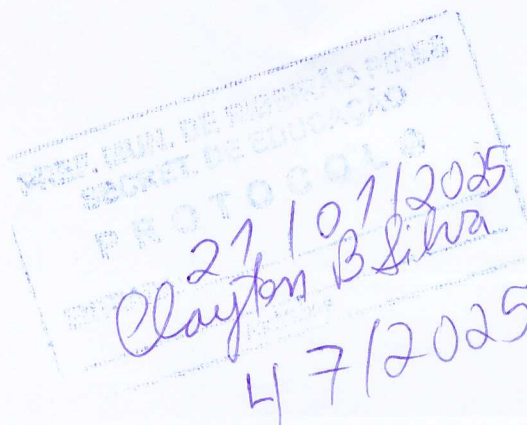 PREF. MUN. DE RIBEIRÃO PIRES
SECRET. DE EDUCAÇÃO
PROTOCOLO
21/01/2025
Clayton B Silva
47/2025